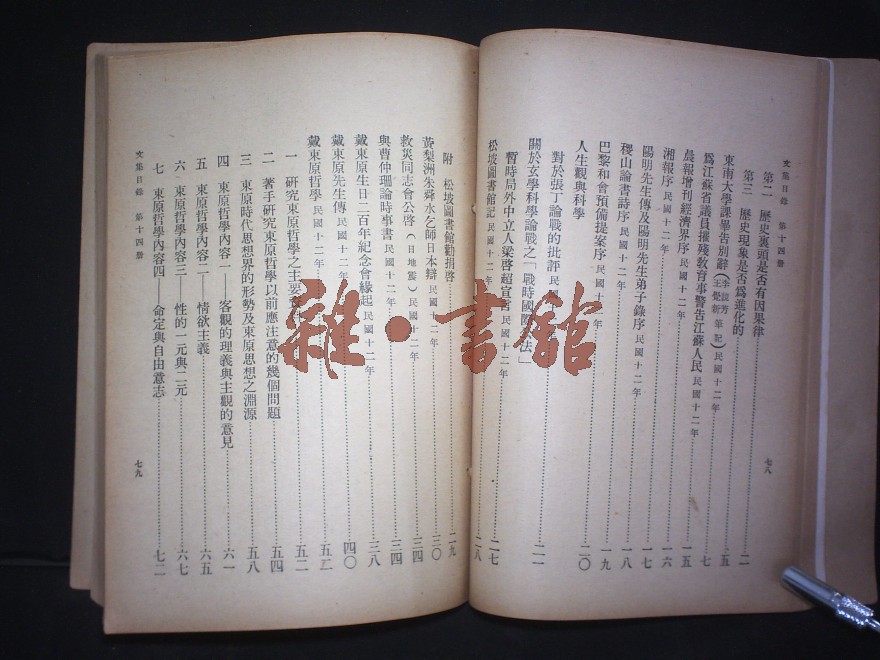 文集目錄 第十四册
第二 歷史裏頭是否有因果律
第三 歷史現象是否為進化的……二
東南大學課畢告別辭(李 芳 王覺新 筆記)民國十二年……五
為江蘇省議員摧殘教育事警告江蘇人民民國十二年……七
晨報增刊經濟界序民國十二年……一五
湘報序民國十二年……一六
陽明先生傳及陽明先生弟子錄序民國十二年……一七
稷山論書詩序民國十二年……一八
巴黎和會預備提案序民國十二年……一九
人生觀與科學……二〇
對於張丁論戰的批評民國
關於玄學科學論戰之「戰時國際 法」……二一
暫時局外中立人梁啓超宣言民國十二年
松坡圖書館記民國十二年……二七
七八
附 松坡圖書館勸捐啓……二八
黃梨洲朱舜水乞師日本辯民國十二年……二九
救災同志會公啓(日地震)民國十二年……三〇
與曹仲珊論時事書民國十二年……三四
戴東原生日二百年紀念會緣起民國十二年……三八
戴東原先生傳民國十二年……四〇
戴東原哲學民國十二年……五二
一 研究東原哲學之主要
二 著手研究東原哲學以前應注意的幾個問題……五四
三 東原時代思想界的形勢及東原思想之淵源……五八
四 東原哲學內容一——客觀的理義與主觀的意見……六一
五 東原哲學內容二——情欲主義……六五
六 東原哲學內容三——性的一元與二元……六七
七 東原哲學內容四——命定與自由意志……七二
文集目錄 第十四册
七九
雜·書館